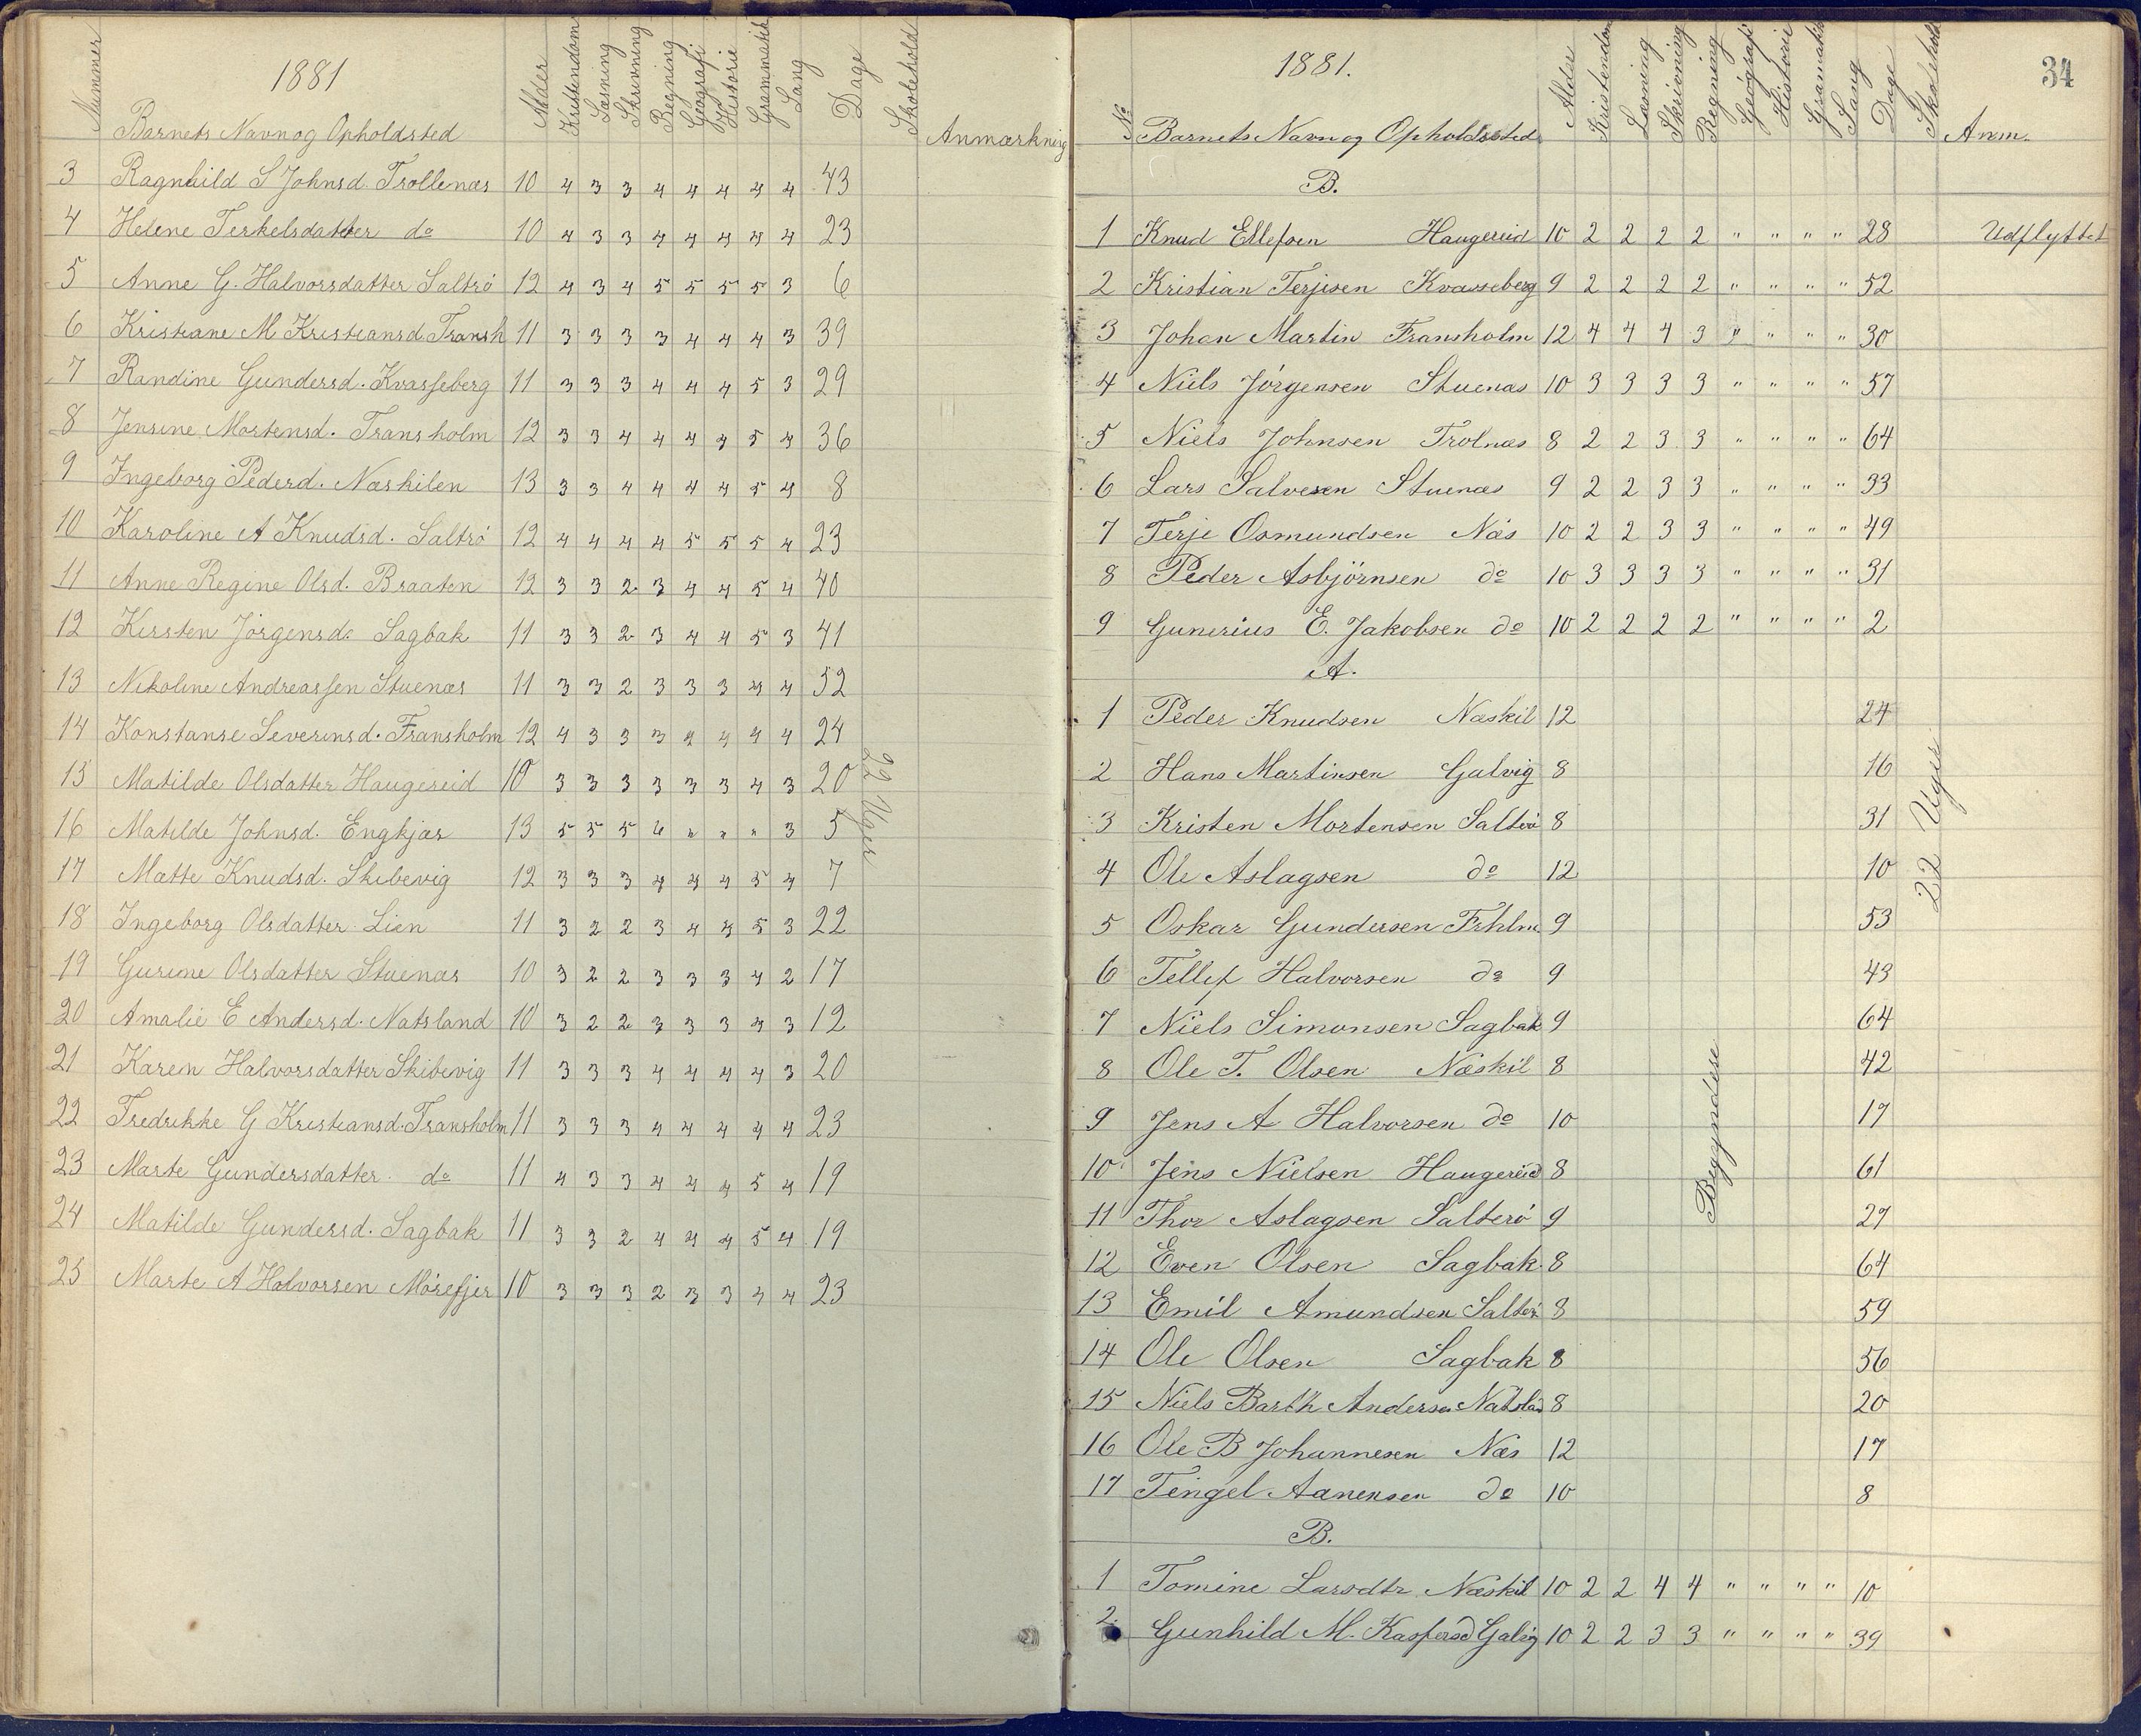 1881
Nummer Barnets Navn og Opholdsted Alder Kristendom Læsning Skrivning Regning Geografi Historie Grammatik Sang Dage Skolehold Anmærkning
3 Ragnhild S Johnsd Trollenæs 10 4 3 3 4 4 4 4 4 43
4 Helene Terkelsdatter do 10 4 3 3 4 4 4 4 4 23
5 Anne G. Halvorsdatter Saltrö 12 4 3 4 5 5 5 5 3 6
6 Kristiane M Kristiansd. Fransh 11 3 3 3 3 4 4 4 3 39
7 Randine Gundersd. Kvasseberg 11 3 3 3 4 4 4 5 3 29
8 Jensine Mortensd. Fransholm 12 3 3 4 4 4 4 5 4 36
9 Ingeborg Pederd. Næskilen 13 3 3 4 4 4 4 5 4 8
10 Karoline A Knudsd. Saltrö 12 4 4 4 4 5 5 5 4 23
11 Anne Regine Olsd. Braaten 12 3 3 2 3 4 4 5 4 40
12 Kirsten Jörgensd. Sagbak 11 3 3 2 3 4 4 5 3 41
13 Nikoline Andreassen Stuenæs 11 3 3 2 3 3 3 4 4 52
14 Konstanse Severinsd. Fransholm 12 4 3 3 3 4 4 4 4 24
15 Matilde Olsdatter Haugereid 10 3 3 3 3 3 3 4 3 20
22 Uger
16 Matilde Johnsd. Engkjær 13 5 5 5 6 " " " 3 5
17 Matte Knudsd. Skibevig 12 3 3 3 4 4 4 5 4 7
18 Ingeborg Olsdatter Lien 11 3 2 2 3 4 4 5 3 22
19 Gurine Olsdatter Stuenæs 10 3 2 2 3 3 3 4 2 17
20 Amalie E Andersd. Natsland 10 3 2 2 3 3 3 4 3 12
21 Karen Halvorsdatter Skibevig 11 3 3 3 4 4 4 4 3 20
22 Fredrikke G Kristiansd. Fransholm 11 3 3 3 4 4 4 4 4 23
23 Marte Gundersdatter do 11 4 3 3 4 4 4 5 4 19
24 Matilde Gundersd. Sagbak 11 3 3 2 4 4 4 5 4 19
25 Marte A Halvorsen Mörefjer 10 3 3 3 2 3 3 4 4 23
34
1881.
No Barnets Navn og Opholdssted Alder Kristendom Læsning Skrivning Regning Geografi Historie Gramatik Sang Dage Skolehold Anm.
B.
1 Knud Ellefsen Haugereid 10 2 2 2 2 " " " " 28 Udflyttet
2 Kristian Terjesen Kvasseberg 9 2 2 2 2 " " " " 52
3 Johan Martin Fransholm 12 4 4 4 3 " " " " 30
4 Niels Jörgensen Stuenæs 10 3 3 3 3 " " " " 57
5 Niels Johnsen Trolnæs 8 2 2 3 3 " " " " 64
6 Lars Salvesen Stuenæs 9 2 2 3 3 " " " " 33
7 Terje Osmundsen Næs 10 2 2 3 3 " " " " 49
8 Peder Asbjörnsen do 10 3 3 3 3 " " " " 31
9 Gunerius E. Jakobsen do 10 2 2 2 2 " " " " 2
A.
1 Peder Knudsen Næskil 12 24
2 Hans Martinsen Galvig 8 16
3 Kristen Mortensen Salterö 8 31
22 Uger
4 Ole Aslagsen do 12 10
5 Oskar Gundersen Frhlm 9 53
6 Tellef Halvorsen do 9 43
7 Niels Simonsen Sagbak 9 64
8 Ole T. Olsen Næskil 8 42
9 Jens A Halvorsen do 10 17
Begyndere
10 Jens Nielsen Haugereid 8 61
11 Thor Aslagsen Salterö 9 27
12 Even Olsen Sagbak. 8 64
13 Emil Amundsen Salterö 8 59
14 Ole Olsen Sagbak 8 56
15 Niels Barth Andersen Natslad 8 20
16 Ole B Johannesen Næs 12 17
17 Tengel Aanensen do 10 8
B.
1 Tomine Larsdtr Næskil 10 2 2 4 4 " " " " 10
2. Gunhild M. Kaspersd Galvig 10 2 2 3 3 " " " " 39